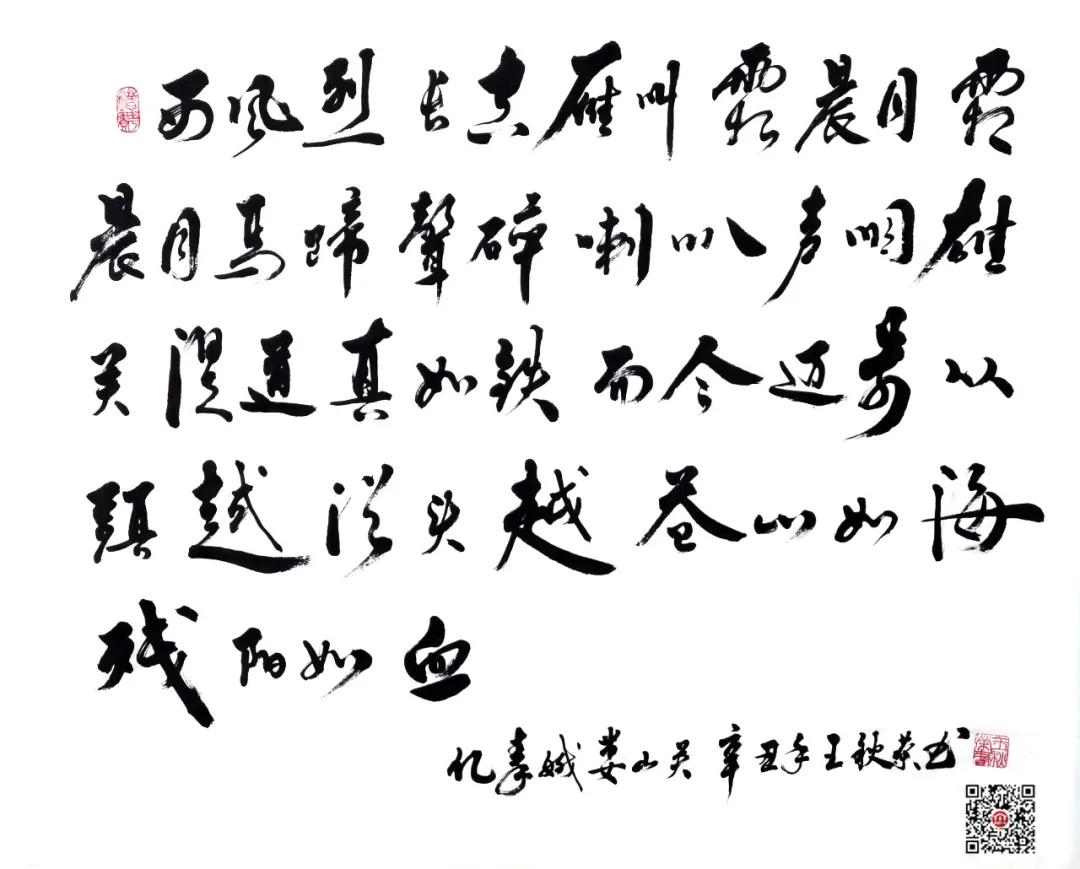 西风烈长空雁叫霜晨月霜
晨月马蹄聲碎喇叭声咽雄
关漫道真如铁而今迈步从
頭越從头越苍山如海
残阳如血
忆秦娥娄山关辛丑年王秋荣书